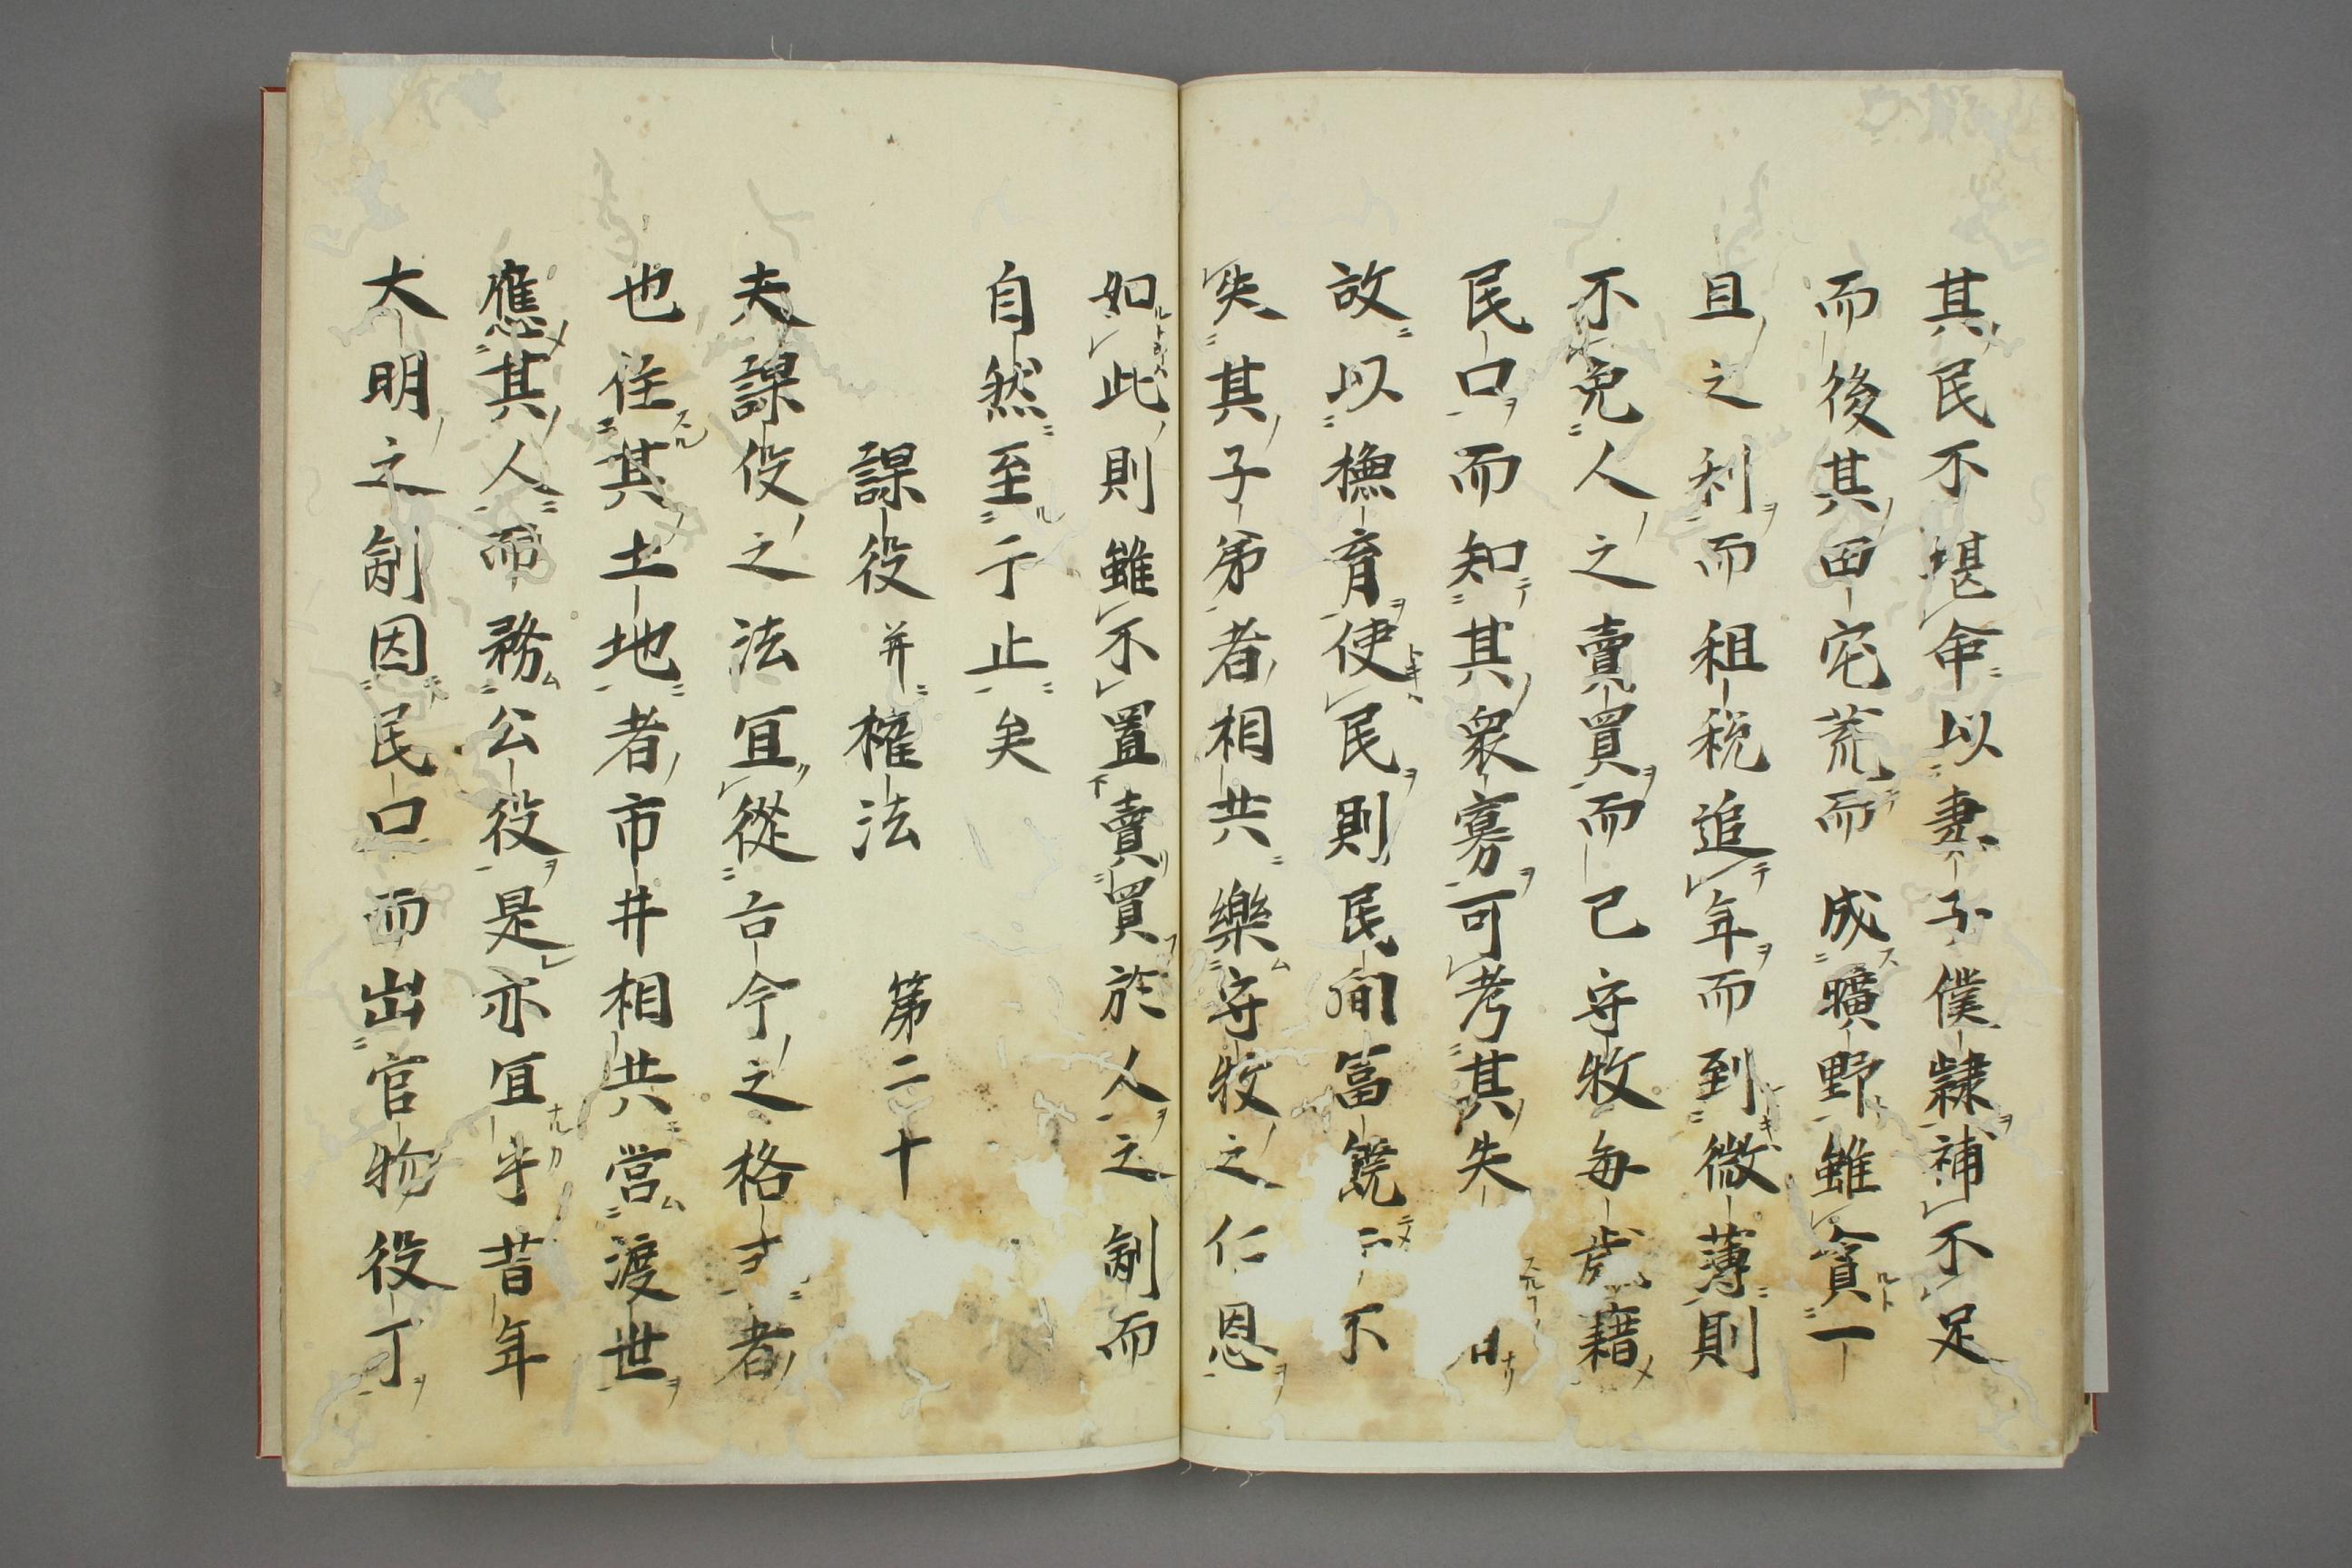 其民不堪命以妻子僕隷補不足
而後其田宅荒而成曠野雖貪一
且之利而租税追年而到微薄則
不免人之賣買而已守牧毎歳藉
民口而知其衆寡可考其失
故以橅育使民則民間冨饒不
矣其子弟者相共樂守牧之仁恩
如此則雖不置賣買於人之制而
自然至于止矣
課役并権法 第二十
夫課役之法冝從古今之格者
也住其土地者市井相共営渡世
應其人而務公役是亦冝乎昔年
大明之制因民口而出官物役丁